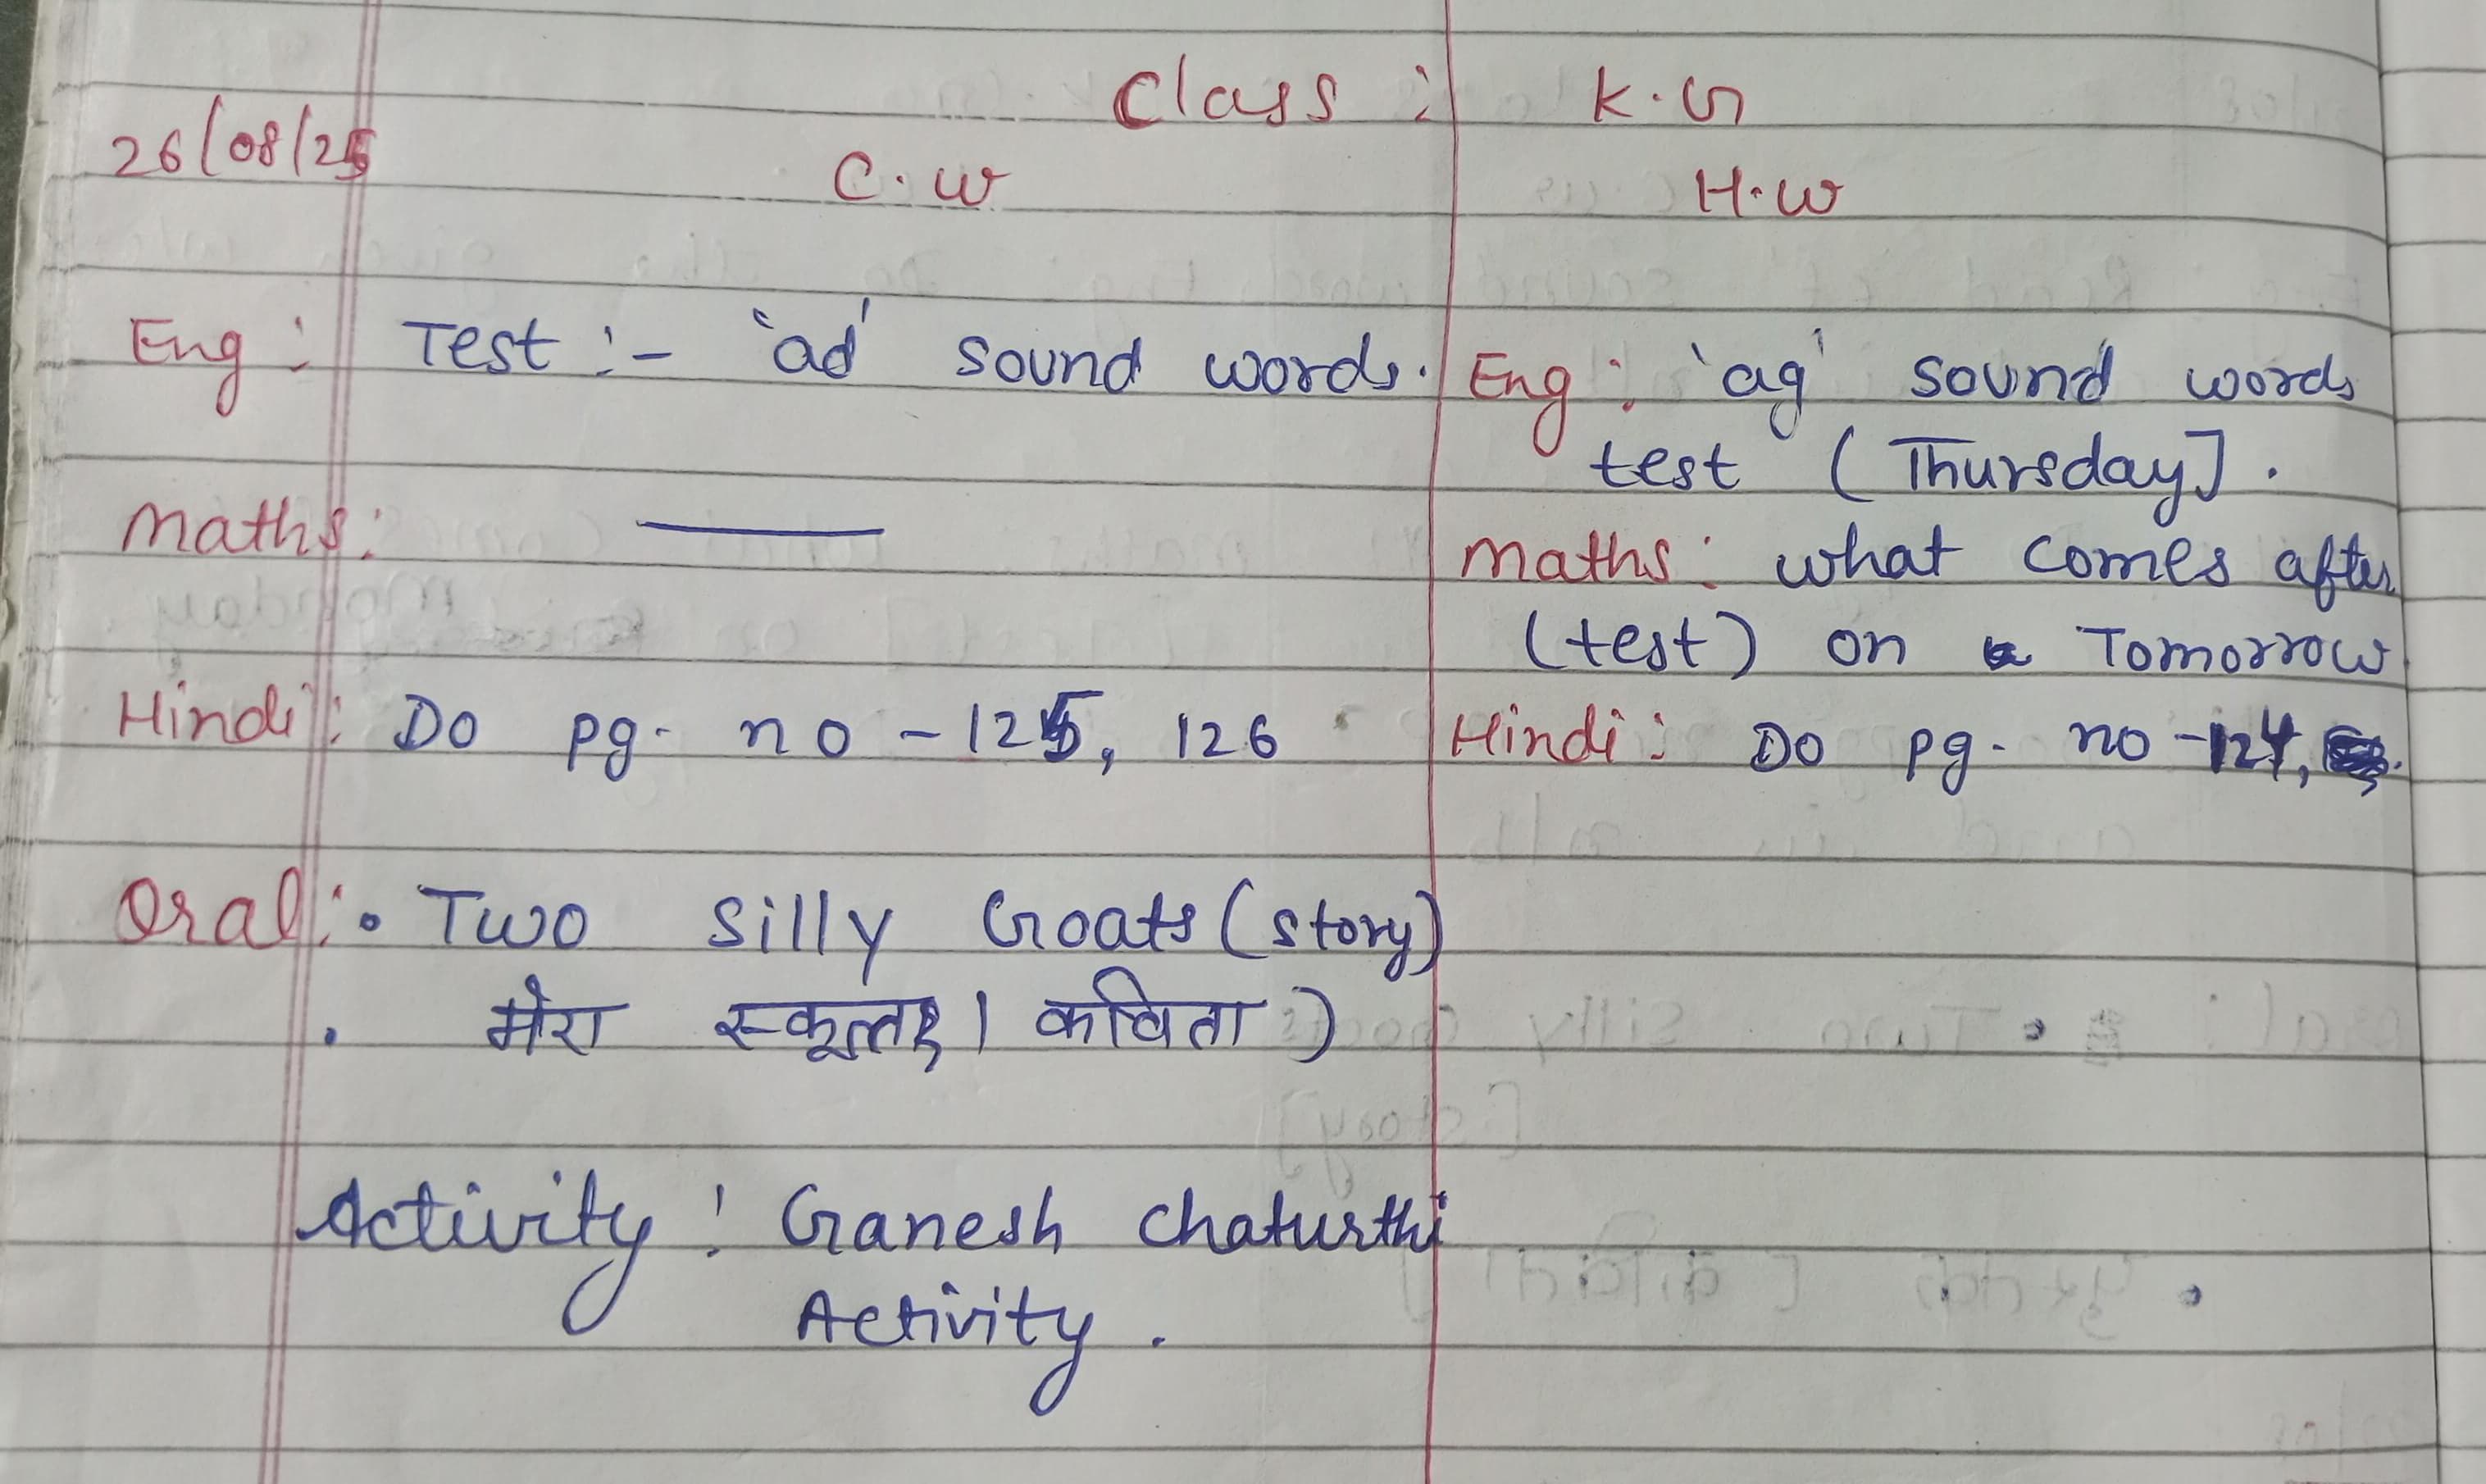 Class : K.G
26/08/25
C.w
H.w
Eng : Test :- 'ad' sound words.
Maths: ——
Hindi : Do pg. no - 125, 126
Oral : • Two silly Goats (story)
• मेरा स्कूल । कविता )
Activity : Ganesh chaturthi
Activity .
Eng : 'ag' sound words
test (Thursday] .
Maths : what comes after
(test) on Tomorrow
Hindi : Do pg. no - 124,